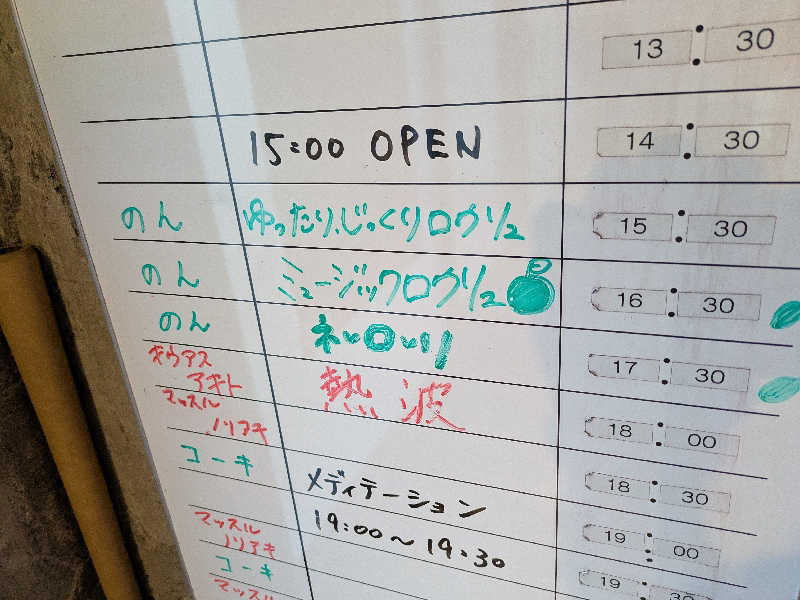 13:30
15:00 OPEN 14:30
のん ゆったり、じっくりロウリュ 15:30
のん ミュージックロウリュ 16:30
のん ネッロッリ 17:30
キウアス
アキト 熱波 18:00
マッスル
ノリアキ 18:30
コーキ メディテーション 19:00
19:00～19:30 19:30
マッスル
ノリアキ
コーキ
マッスル